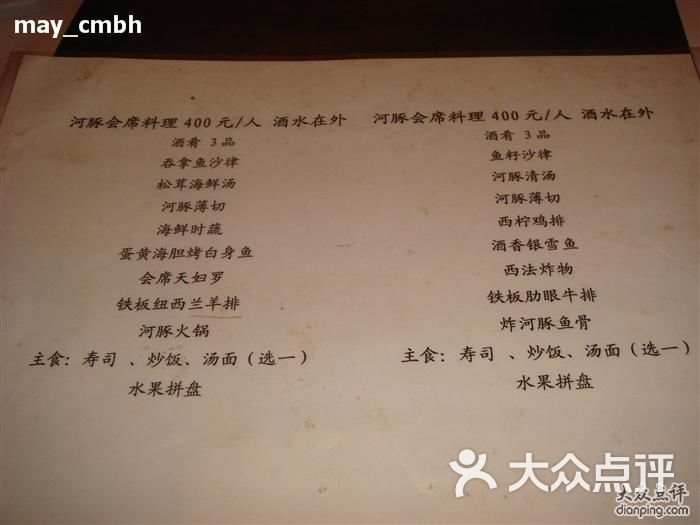 may_cmbh
河豚会席料理 400 元/人 酒水在外
酒肴 3品
吞拿鱼沙律
松茸海鲜汤
河豚薄切
海鲜时蔬
蛋黄海胆烤白身鱼
会席天妇罗
铁板纽西兰羊排
河豚火锅
主食：寿司 、炒饭、汤面（选一）
水果拼盘
河豚会席料理 400 元/人 酒水在外
酒肴 3品
鱼籽沙律
河豚清汤
河豚薄切
西柠鸡排
酒香银雪鱼
西法炸物
铁板肋眼牛排
炸河豚鱼骨
主食：寿司 、炒饭、汤面（选一）
水果拼盘
大众点评
大众点评
dianping.com